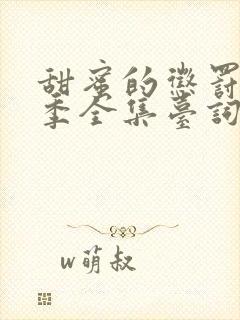 甜蜜的懲罰
季全集臺詞
w萌叔